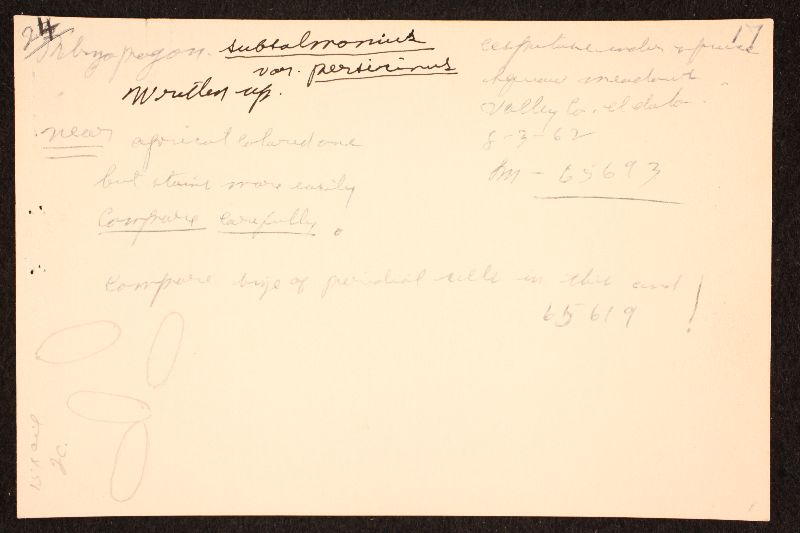 24 17
Rhizopogon subsalmonius
var. persicinus
Written up.
cespitose under spruce
Squaw meadows
Valley Co. Idaho.
8-3-62
Sm - 65693
near apricot colored one
but stains more easily
Compare carefully.
Compare size of peridial cells in this and
65619 !